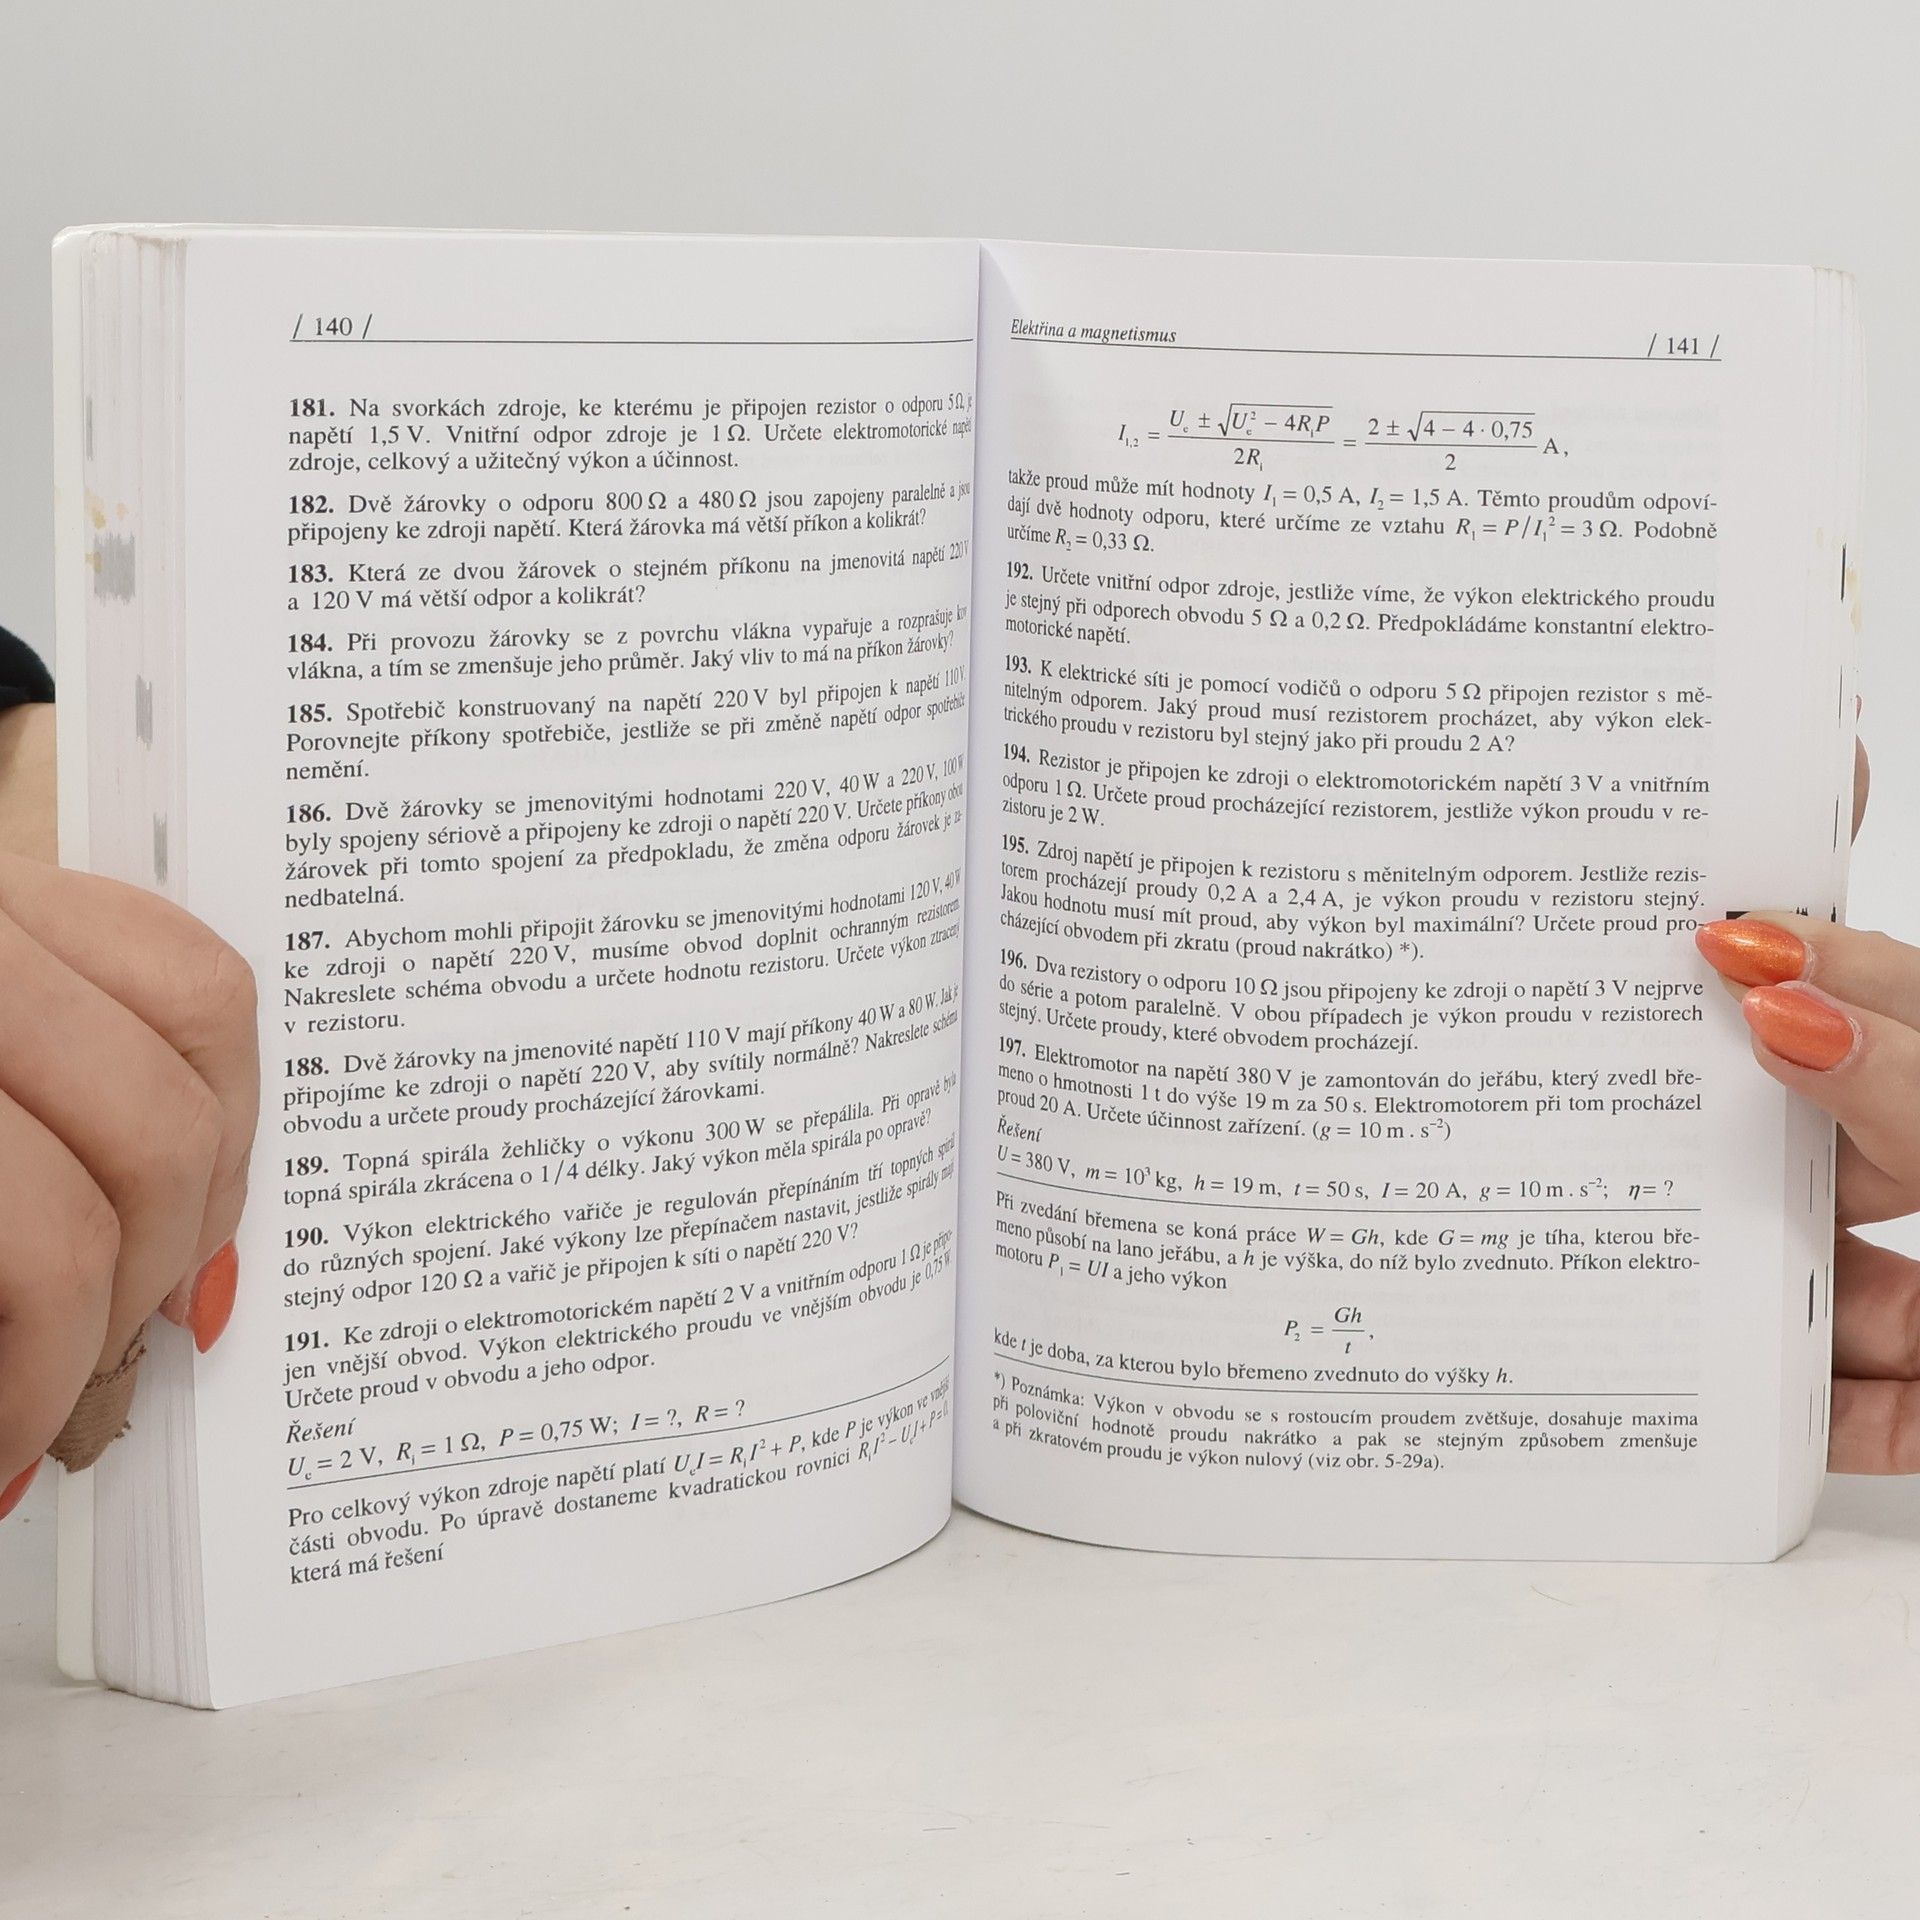 / 140 /
181. Na svorkách zdroje, ke kterému je připojen rezistor o odporu 5 Ω, je
napětí 1,5 V. Vnitřní odpor zdroje je 1 Ω. Určete elektromotorické napětí
zdroje, celkový a užitečný výkon a účinnost.
182. Dvě žárovky o odporu 800 Ω a 480 Ω jsou zapojeny paralelně a jsou
připojeny ke zdroji napětí. Která žárovka má větší příkon a kolikrát?
183. Která ze dvou žárovek o stejném příkonu na jmenovitá napětí 220 V
a 120 V má větší odpor a kolikrát?
184. Při provozu žárovky se z povrchu vlákna vypařuje a rozprašuje kov
vlákna, a tím se zmenšuje jeho průměr. Jaký vliv to má na příkon žárovky?
185. Spotřebič konstruovaný na napětí 220 V byl připojen k napětí 110 V.
Porovnejte příkony spotřebiče, jestliže se při změně napětí odpor spotřebiče
nemění.
186. Dvě žárovky se jmenovitými hodnotami 220 V, 40 W a 220 V, 100 W
byly spojeny sériově a připojeny ke zdroji o napětí 220 V. Určete příkony obou
žárovek při tomto spojení za předpokladu, že změna odporu žárovek je za-
nedbatelná.
187. Abychom mohli připojit žárovku se jmenovitými hodnotami 120 V, 40 W
ke zdroji o napětí 220 V, musíme obvod doplnit ochranným rezistorem.
Nakreslete schéma obvodu a určete hodnotu rezistoru. Určete výkon ztracený
v rezistoru.
188. Dvě žárovky na jmenovité napětí 110 V mají příkony 40 W a 80 W. Jak je
připojíme ke zdroji o napětí 220 V, aby svítily normálně? Nakreslete schéma
obvodu a určete proudy procházející žárovkami.
189. Topná spirála žehličky o výkonu 300 W se přepálila. Při opravě byla
topná spirála zkrácena o 1/4 délky. Jaký výkon měla spirála po opravě?
190. Výkon elektrického vařiče je regulován přepínáním tří topných spirál
do různých spojení. Jaké výkony lze přepínačem nastavit, jestliže spirály mají
stejný odpor 120 Ω a vařič je připojen k síti o napětí 220 V?
191. Ke zdroji o elektromotorickém napětí 2 V a vnitřním odporu 1 Ω je připo-
jen vnější obvod. Výkon elektrického proudu ve vnějším obvodu je 0,75 W.
Určete proud v obvodu a jeho odpor.
Řešení
Uₑ = 2 V, Rᵢ = 1 Ω, P = 0,75 W; I = ?, R = ?
Pro celkový výkon zdroje napětí platí UₑI = RᵢI² + P, kde P je výkon ve vnější
části obvodu. Po úpravě dostaneme kvadratickou rovnici RᵢI² – UₑI + P = 0,
která má řešení
Elektřina a magnetismus
/ 141 /
I₁,₂ = (Uₑ ± √(Uₑ² – 4RᵢP)) / 2Rᵢ = (2 ± √(4 – 4 · 0,75)) / 2 A,
takže proud může mít hodnoty I₁ = 0,5 A, I₂ = 1,5 A. Těmto proudům odpoví-
dají dvě hodnoty odporu, které určíme ze vztahu R₁ = P/I₁² = 3 Ω. Podobně
určíme R₂ = 0,33 Ω.
192. Určete vnitřní odpor zdroje, jestliže víme, že výkon elektrického proudu
je stejný při odporech obvodu 5 Ω a 0,2 Ω. Předpokládáme konstantní elektro-
motorické napětí.
193. K elektrické síti je pomocí vodičů o odporu 5 Ω připojen rezistor s mě-
nitelným odporem. Jaký proud musí rezistorem procházet, aby výkon elek-
trického proudu v rezistoru byl stejný jako při proudu 2 A?
194. Rezistor je připojen ke zdroji o elektromotorickém napětí 3 V a vnitřním
odporu 1 Ω. Určete proud procházející rezistorem, jestliže výkon proudu v re-
zistoru je 2 W.
195. Zdroj napětí je připojen k rezistoru s měnitelným odporem. Jestliže rezis-
torem procházejí proudy 0,2 A a 2,4 A, je výkon proudu v rezistoru stejný.
Jakou hodnotu musí mít proud, aby výkon byl maximální? Určete proud pro-
cházející obvodem při zkratu (proud nakrátko) *).
196. Dva rezistory o odporu 10 Ω jsou připojeny ke zdroji o napětí 3 V nejprve
do série a potom paralelně. V obou případech je výkon proudu v rezistorech
stejný. Určete proudy, které obvodem procházejí.
197. Elektromotor na napětí 380 V je zamontován do jeřábu, který zvedl bře-
meno o hmotnosti 1 t do výše 19 m za 50 s. Elektromotorem při tom procházel
proud 20 A. Určete účinnost zařízení. (g = 10 m . s⁻²)
Řešení
U = 380 V, m = 10³ kg, h = 19 m, t = 50 s, I = 20 A, g = 10 m . s⁻²; η = ?
Při zvedání břemena se koná práce W = Gh, kde G = mg je tíha, kterou bře-
meno působí na lano jeřábu, a h je výška, do níž bylo zvednuto. Příkon elektro-
motoru P₁ = UI a jeho výkon
P₂ = Gh / t,
kde t je doba, za kterou bylo břemeno zvednuto do výšky h.
*) Poznámka: Výkon v obvodu se s rostoucím proudem zvětšuje, dosahuje maxima
při poloviční hodnotě proudu nakrátko a pak se stejným způsobem zmenšuje
a při zkratovém proudu je výkon nulový (viz obr. 5-29a).